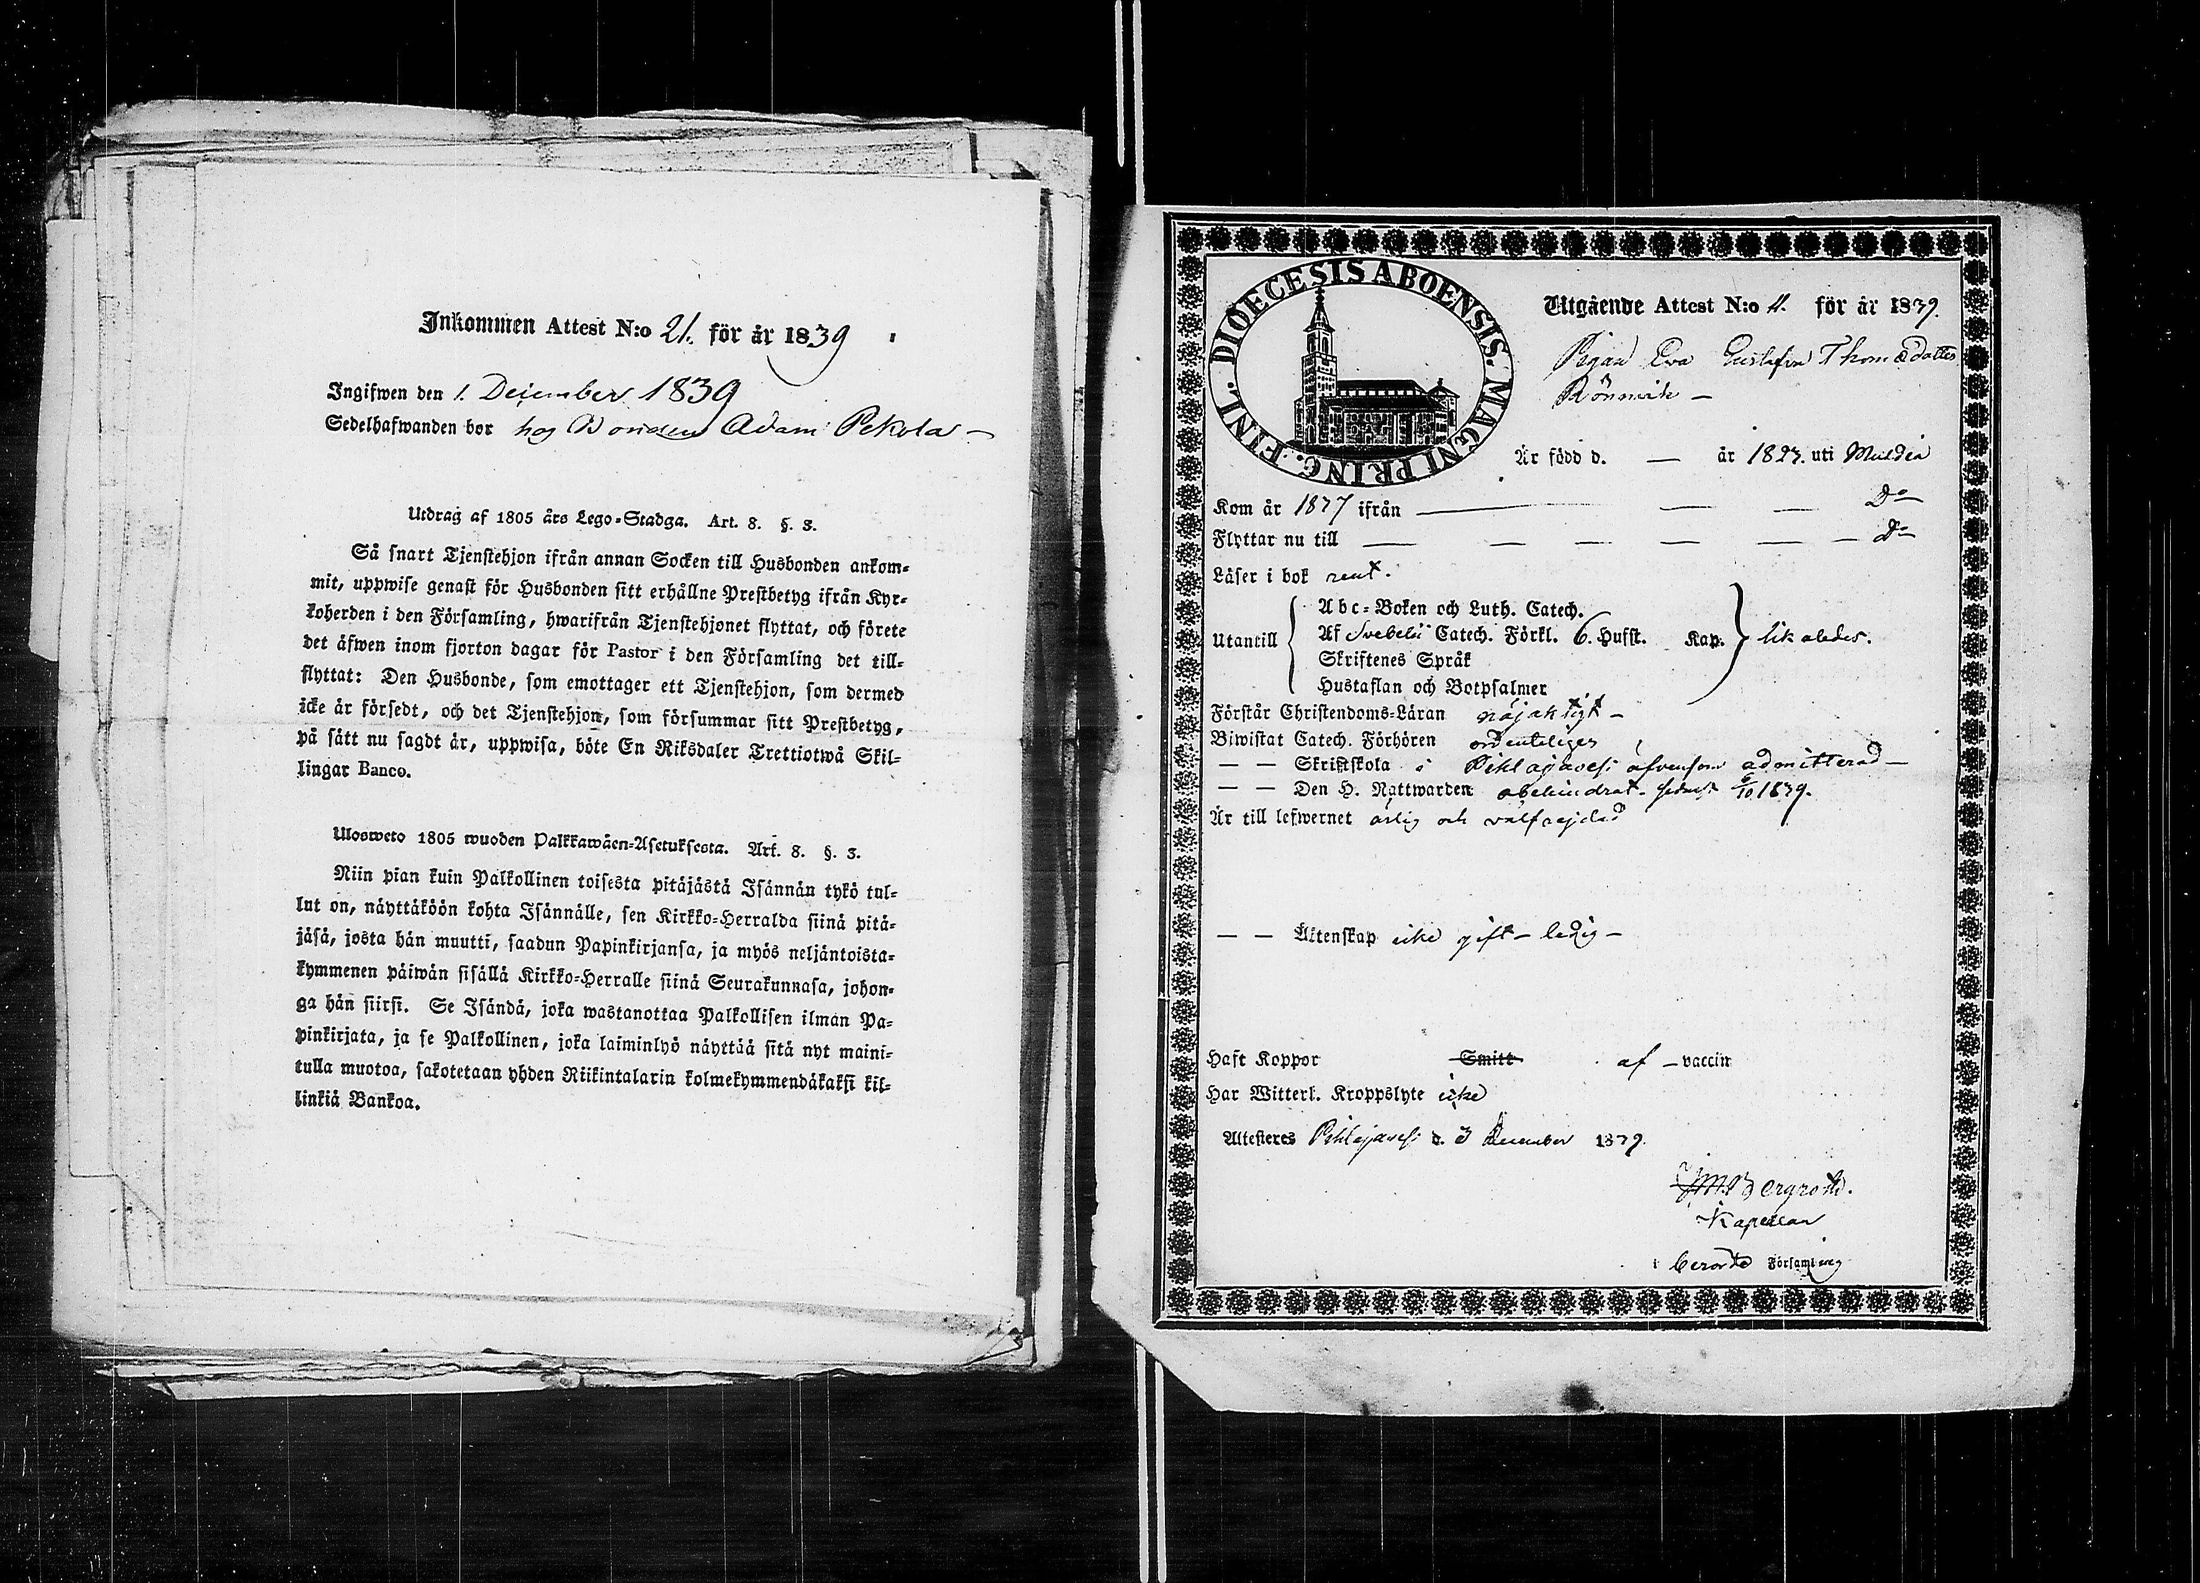 Inkommen Attest N:o 21. för år 1839
Ingifwen den 1. December 1839
Sedelhafwanden bor hos Bonden Adam Pekola
Utdrag af 1805 års Lego-Stadga. Art. 8. §. 3.
Så snart Tjenstehjon ifrån annan Socken till Husbonden ankom-
mit, uppwise genast för Husbonden sitt erhållne Prestbetyg ifrån Kyr-
koherden i den Församling, hwarifrån Tjenstehjonet flyttat, och förete
det äfwen inom fjorton dagar för Pastor i den Församling det till-
flyttat: Den Husbonde, som emottager ett Tjenstehjon, som dermed
icke är försedt, och det Tjenstehjon, som försummar sitt Prestbetyg,
på sätt nu sagdt är, uppwisa, böte En Riksdaler Trettiotwå Skil-
lingar Banco.
Ulosweto 1805 wuoden Palkkawäen-Asetuksesta. Art. 8. §. 3.
Niin pian kuin Palkollinen toisesta pitäjästä Isännän tykö tul-
lut on, näyttäköön kohta Isännälle, sen Kirkko-Herralda siinä pitä-
jäsä, josta hän muutti, saadun Papinkirjansa, ja myös neljäntoista-
kymmenen päiwän sisällä Kirkko-Herralle siinä Seurakunnasa, johon-
ga hän siirsi. Se Isändä, joka wastanottaa Palkollisen ilman Pa-
pinkirjata, ja se Palkollinen, joka laiminlyö näyttää sitä nyt maini-
tulla muotoa, sakotetaan yhden Riikintalarin kolmekymmendäkaksi kil-
linkiä Bankoa.
DIOECESIS ABOENSIS. MAGNI PRINC. FINL.
Utgående Attest N:o 11. för år 1839.
Pigan Eva Gustafva Thomasdotter
Rönnvik —
Är född d. — år 1823. uti Multia
Kom år 1837 ifrån — — — Do
Flyttar nu till — — — — — — Do
Läser i bok rent.
Utantill
Abc-Boken och Luth. Catech.
Af Svebelii Catech. Förkl. 6. Hufst. Kap. likaledes.
Skriftenes Språk
Hustaflan och Botpsalmer
Förstår Christendoms-Läran nöjaktigt —
Biwistat Catech. Förhören ordenteligen
— — Skriftskola i Pihlajavesi äfvensom admitterad —
— — Den H. Nattwarden obehindrat. sednast 6/10 1839.
Är till lefwernet ärlig och välfrejdad
— — Äktenskap icke gift — ledig —
Haft Koppor Smitt af — vaccin
Har Witterl. Kroppslyte icke
Attesteres Pihlajavesi d. 3 December 1839.
Bergroth.
Kapellan
i berörde Församling